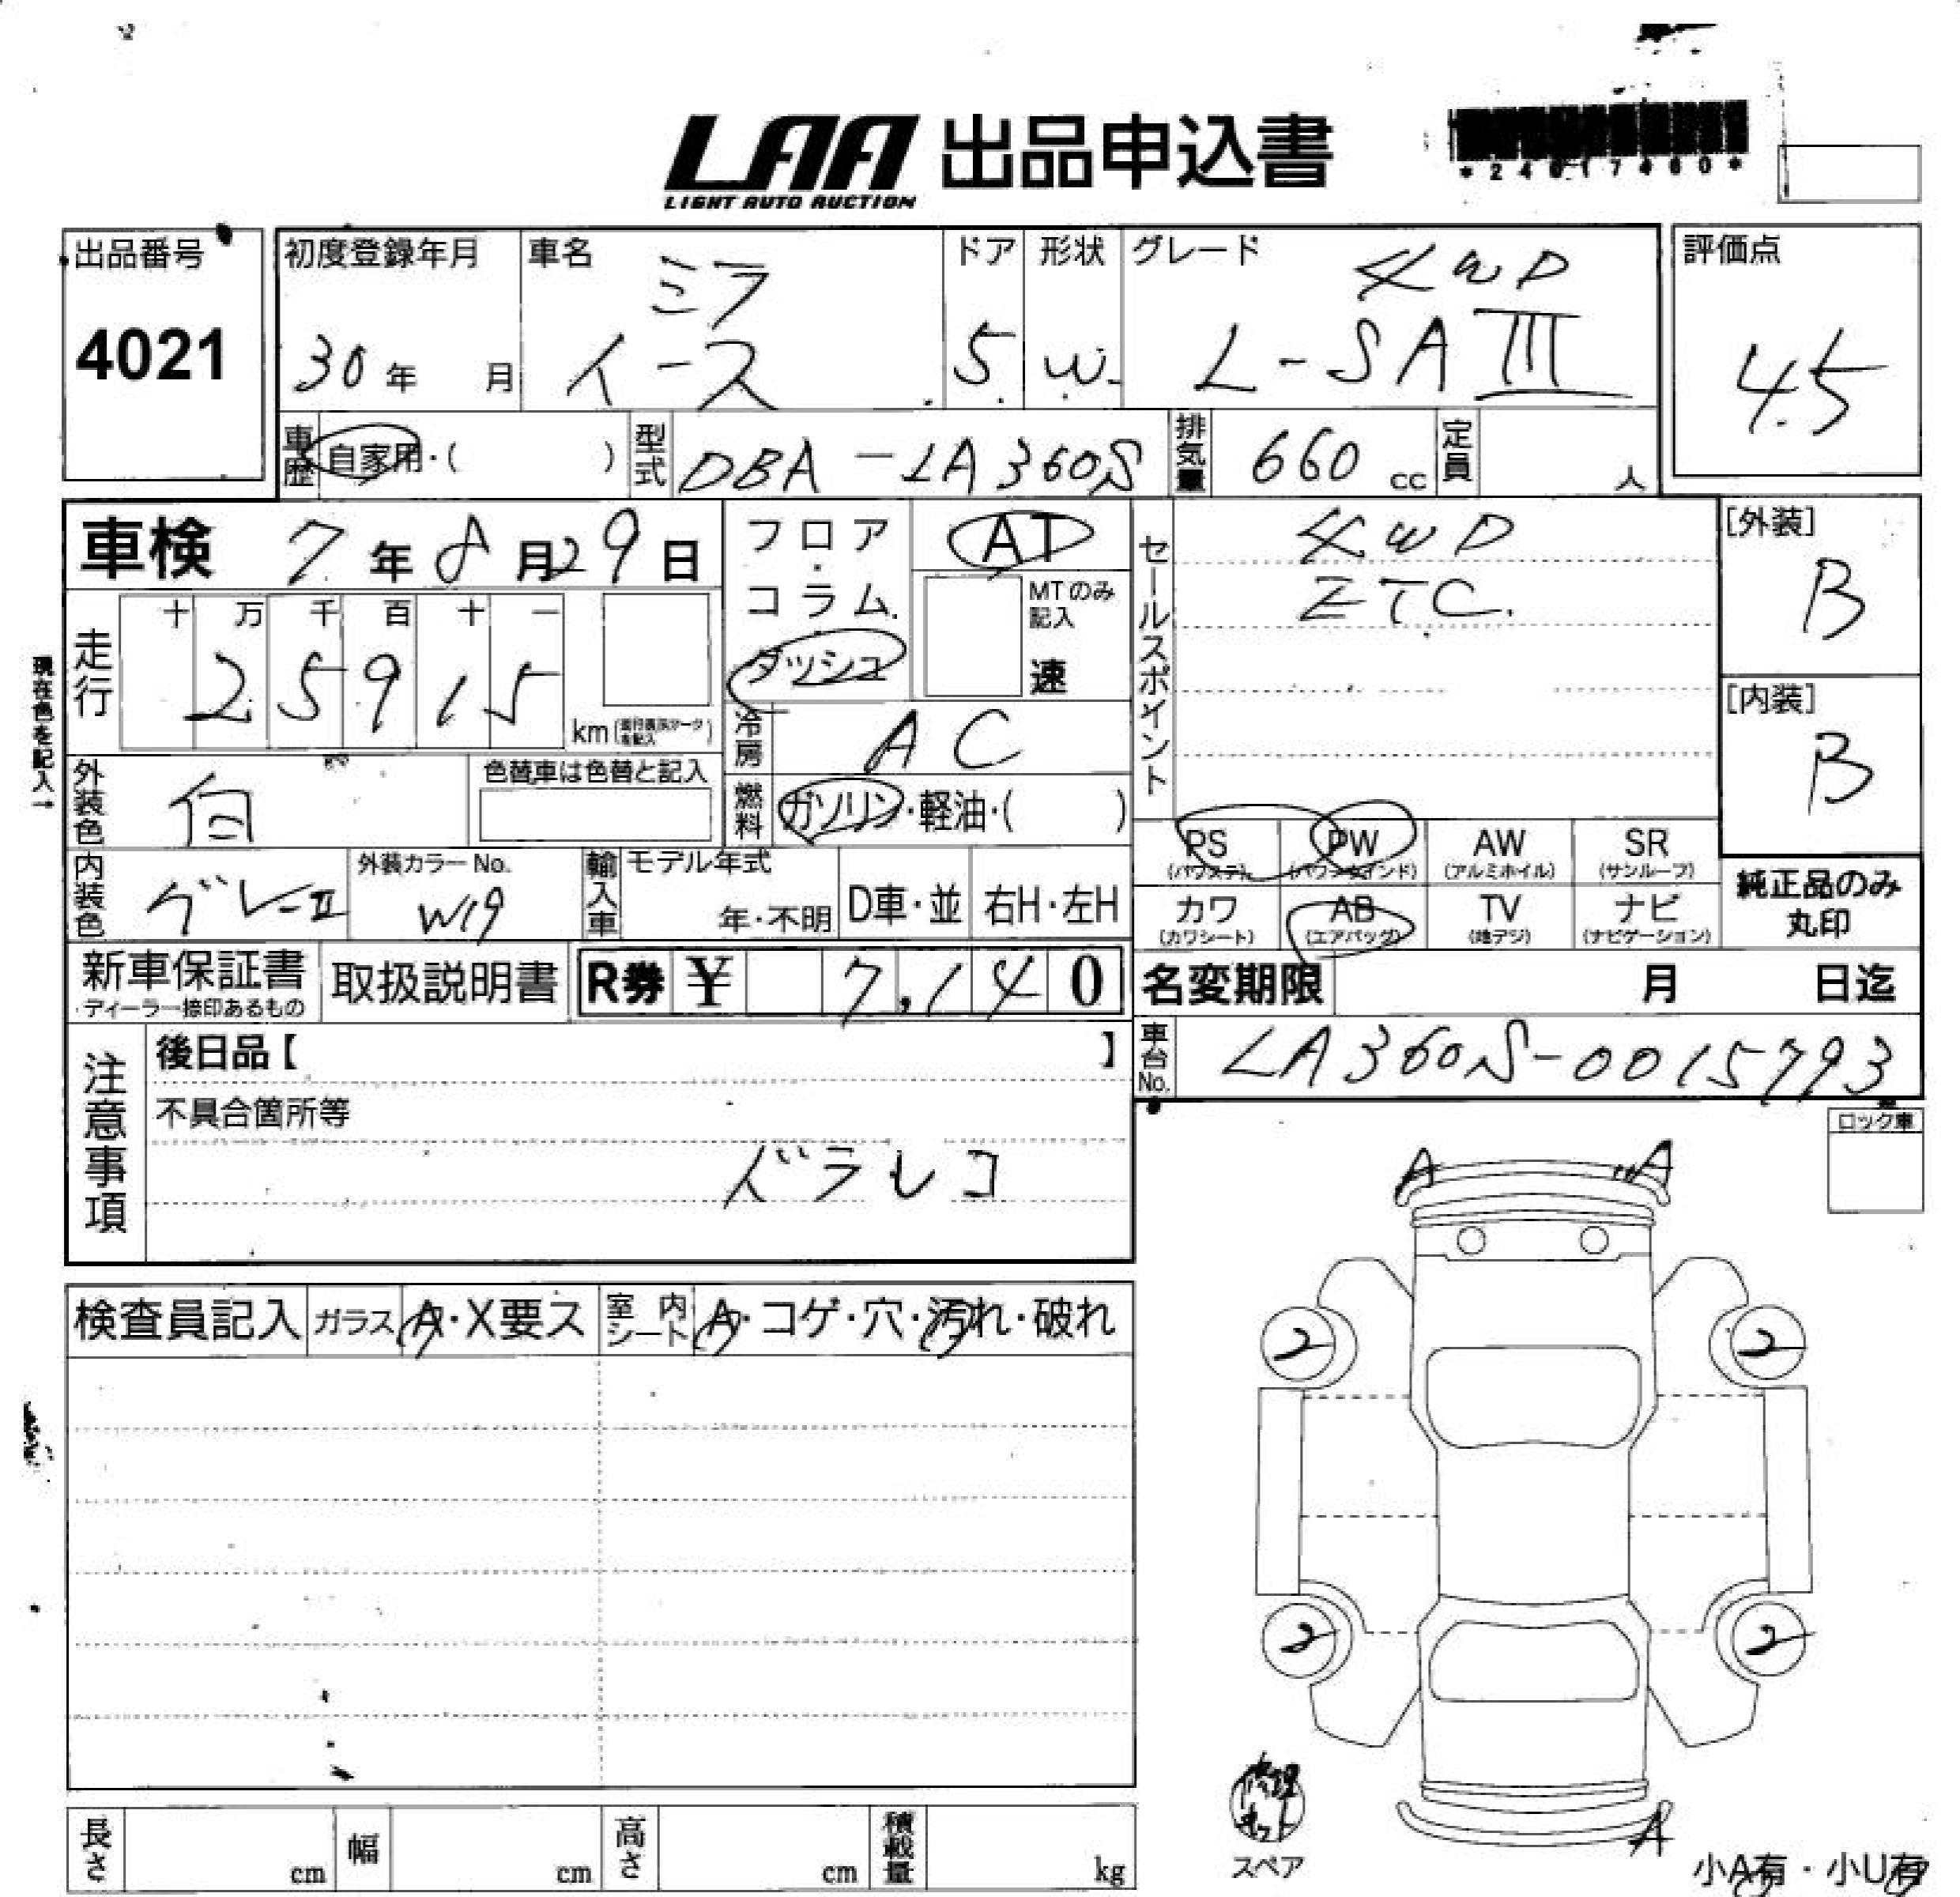 LAA 出品申込書
LIGHT AUTO AUCTION
出品番号
4021
初度登録年月
30年 月
車名
ミラ
イース
ドア
5
形状
W
グレード
4WD
L-SAⅢ
評価点
4.5
車歴 自家用・( )
型式 DBA-LA360S
排気量 660 cc
定員 人
車検 7年8月29日
フロア・コラム
ダッシュ
AT
MTのみ記入
速
セールスポイント
4WD
ETC.
[外装]
B
[内装]
B
現在色を記入→
走行
十 万 千 百 十 一
2 5 9 1 5
km
冷房 AC
燃料 ガソリン・軽油・( )
外装色 白
色替車は色替と記入
内装色 グレーⅡ
外装カラーNo.
W19
輸入車
モデル年式
年・不明
D車・並
右H・左H
PS (パワステ)
PW (パワーウインド)
AW (アルミホイル)
SR (サンルーフ)
カワ (カワシート)
AB (エアバッグ)
TV (地デジ)
ナビ (ナビゲーション)
純正品のみ
丸印
新車保証書
・ディーラー捺印あるもの
取扱説明書
R券 ¥ 7,140
名変期限 月 日迄
車台No. LA360S-0015793
注意事項
後日品【 】
不具合箇所等
ドラレコ
ロック車
A A
検査員記入
ガラス A・X要ス
室内シート A・コゲ・穴・汚れ・破れ
2 2
2 2
修理キット
スペア
A
小A有・小U有
長さ cm
幅 cm
高さ cm
積載量 kg